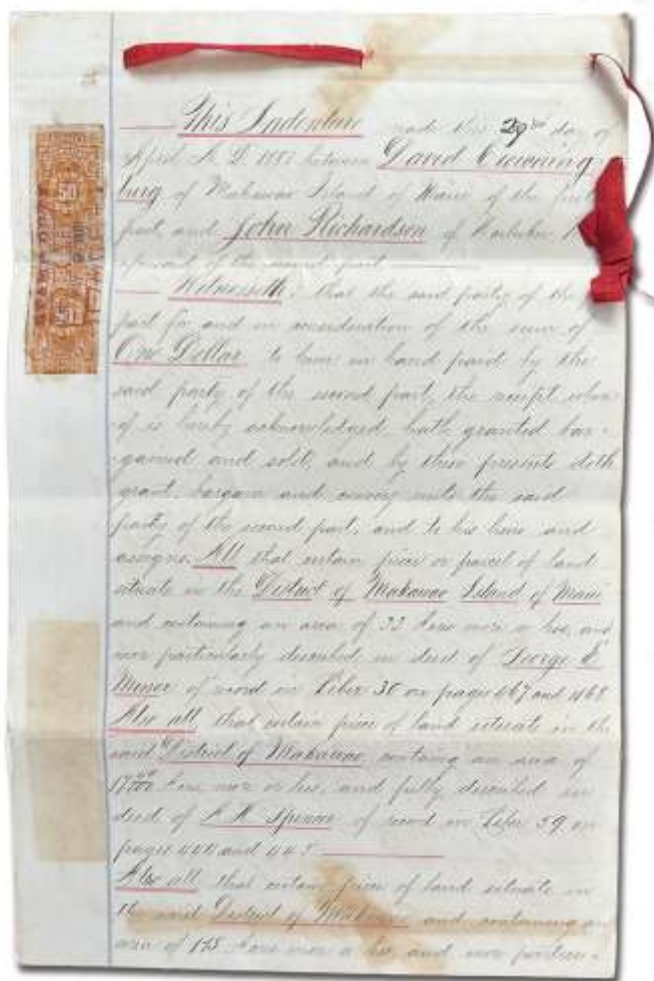 This Indenture made this 29th day of
April A. D. 188 between David Crowning
burg of Makawao Island of Maui of the first
part and John Richardson of Wailuku
of the second part
Witnesseth: that the said party of the
part for and in consideration of the sum of
One Dollar to him in hand paid by the
said party of the second part, the receipt where
of is hereby acknowledged, hath granted bar-
gained and sold, and by these presents doth
grant, bargain and convey unto the said
party of the second part, and to his heirs and
assigns. All that certain piece or parcel of land
situate in the District of Makawao Island of Maui
and containing an area of 33 Acres more or less, and
more particularly described in deed of George E
of record in Liber 30 on pages 467 and 468
Also all that certain piece of land situate in the
said District of Makawao containg an area of
17 Acres more or less, and fully described in
deed of Spencer of record in Liber 59 on
pages 444 and 445
Also all that certain piece of land situate in
the said District of Makawao and containing an
area of 175 Acres more or less, and more particu-
50